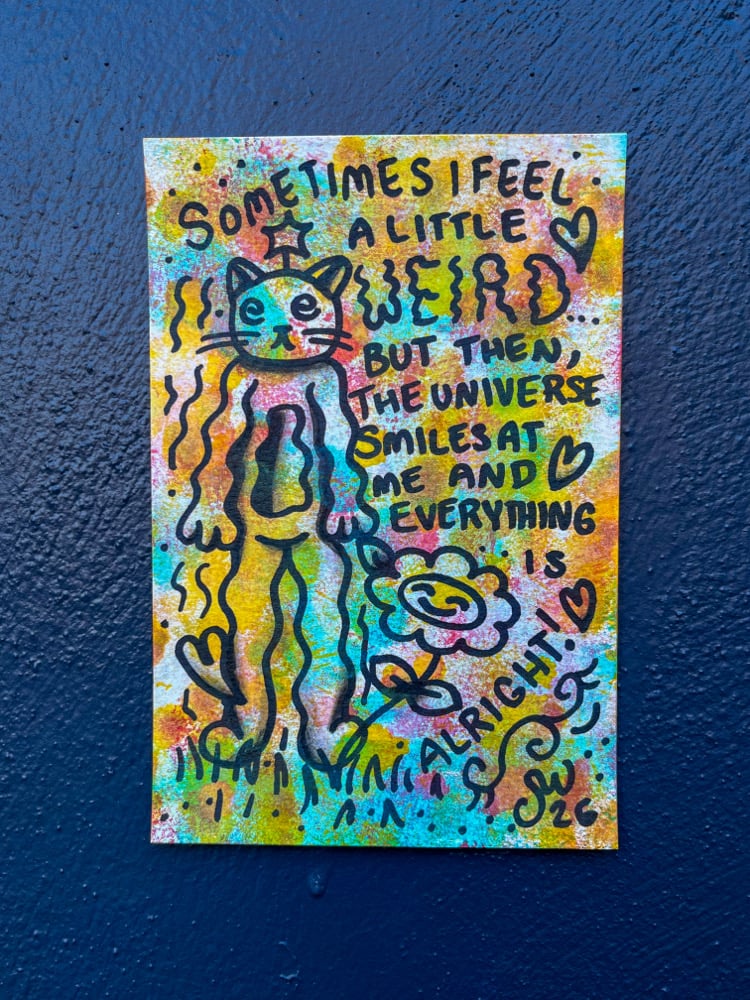 SOMETIMES I FEEL
A LITTLE
WEIRD...
BUT THEN,
THE UNIVERSE
SMILES AT
ME AND
EVERYTHING
IS
ALRIGHT!
JW
26